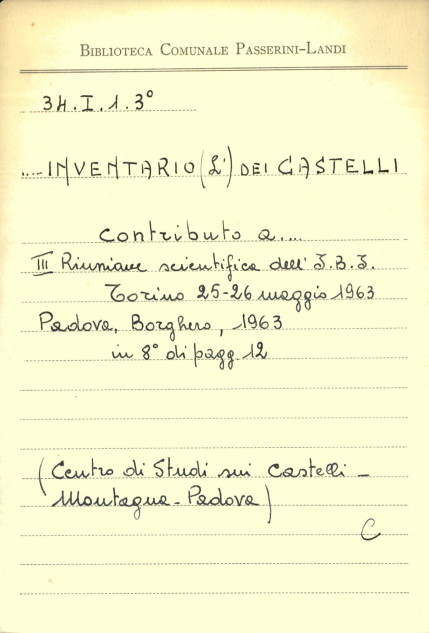 BIBLIOTECA COMUNALE PASSERINI-LANDI
34.I.1.3°
....INVENTARIO (L') DEI CASTELLI
contributo a....
III Riunione scientifica dell' I.B.I.
Torino 25-26 maggio 1963
Padova, Borghero, 1963
in 8° di pagg 12
(Centro di Studi sui Castelli -
Montagna - Padova)
C